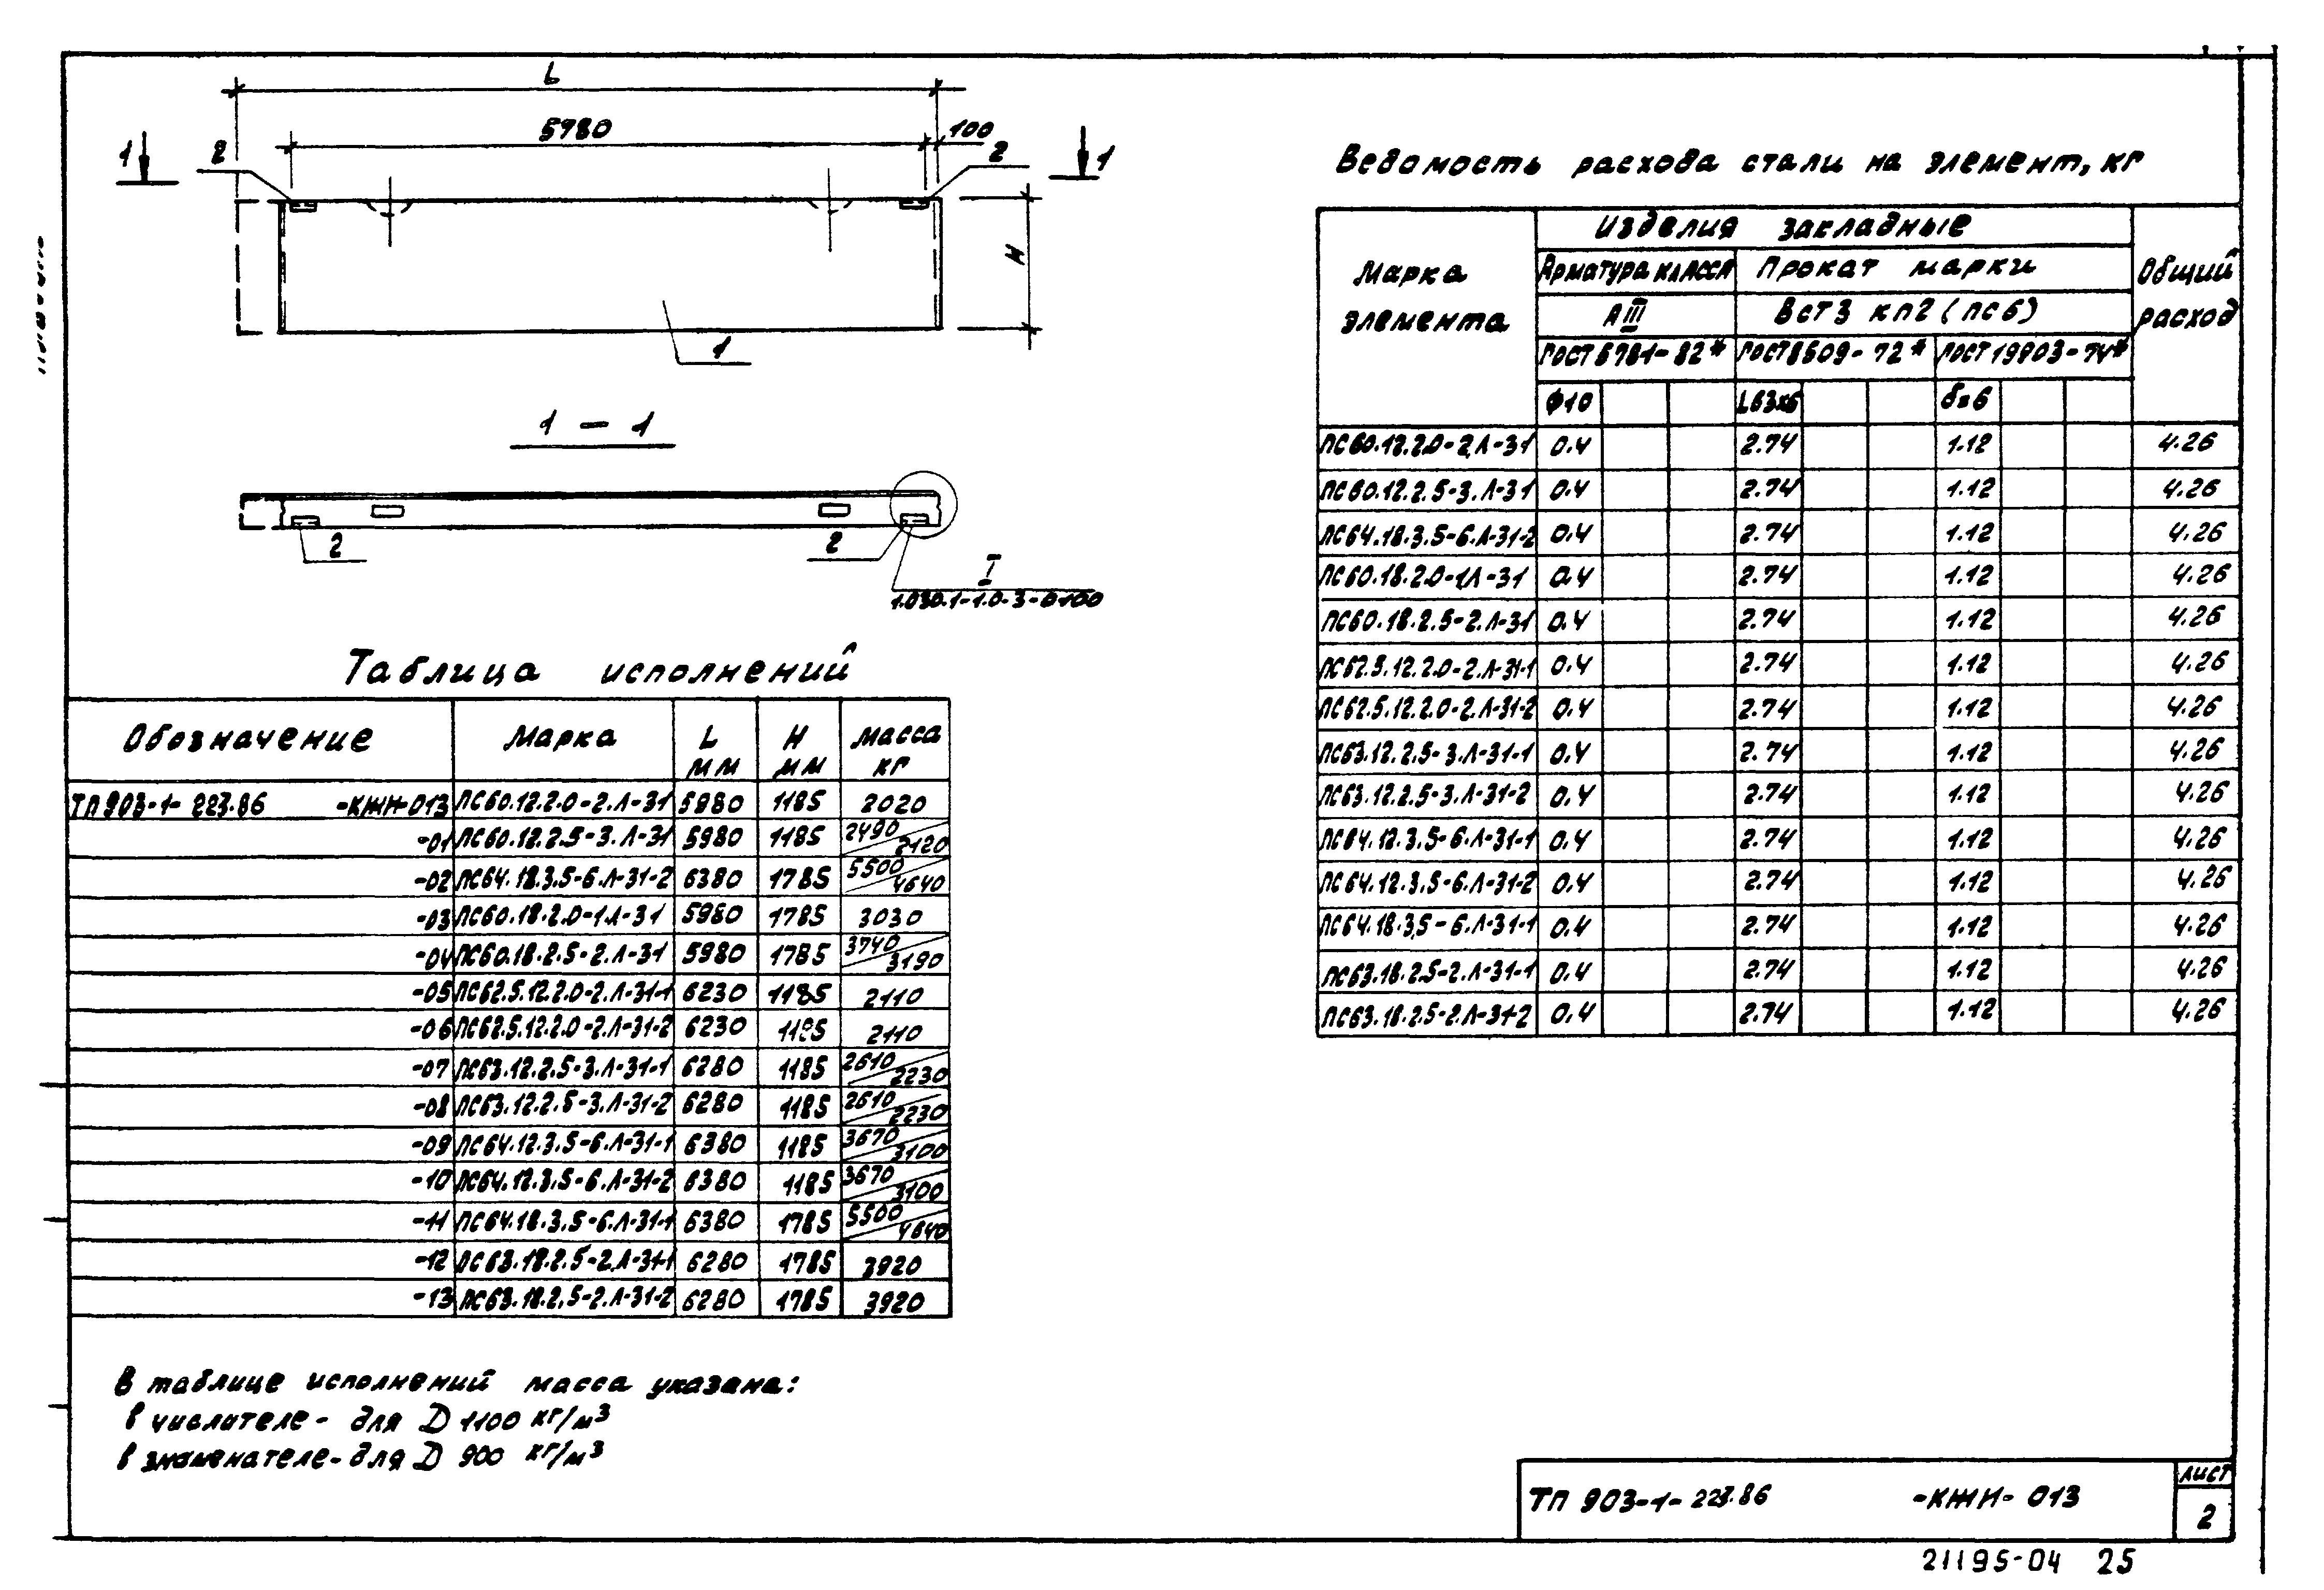 L
5980
100
1
2
2
1
H
1
1 – 1
2
2
I
1.030.1-1.0-3-0100
Таблица исполнений
Обозначение Марка L мм H мм Масса кг
ТП 903-1-223.86 -КЖИ-013 ПС60.12.2.0-2.Л-31 5980 1185 2020
-01 ПС60.12.2.5-3.Л-31 5980 1185 2490/2120
-02 ПС64.18.3.5-6.Л-31-2 6380 1785 5500/4640
-03 ПС60.18.2.0-1.Л-31 5980 1785 3030
-04 ПС60.18.2.5-2.Л-31 5980 1785 3740/3190
-05 ПС62.5.12.2.0-2.Л-31-1 6230 1185 2110
-06 ПС62.5.12.2.0-2.Л-31-2 6230 1185 2110
-07 ПС63.12.2.5-3.Л-31-1 6280 1185 2610/2230
-08 ПС63.12.2.5-3.Л-31-2 6280 1185 2610/2230
-09 ПС64.12.3.5-6.Л-31-1 6380 1185 3670/3100
-10 ПС64.12.3.5-6.Л-31-2 6380 1185 3670/3100
-11 ПС64.18.3.5-6.Л-31-1 6380 1785 5500/4640
-12 ПС63.18.2.5-2.Л-31-1 6280 1785 3920
-13 ПС63.18.2.5-2.Л-31-2 6280 1785 3920
В таблице исполнений масса указана:
в числителе - для D 1100 кг/м³
в знаменателе - для D 900 кг/м³
Ведомость расхода стали на элемент, кг
Марка элемента
Изделия закладные
Общий расход
Арматура класса Прокат марки
АIII ВСт3 кп2 (пс6)
ГОСТ 5781-82* ГОСТ 8509-72* ГОСТ 19903-74*
Ф10 L63х6 δ=6
ПС60.12.2.0-2.Л-31 0.4 2.74 1.12 4.26
ПС60.12.2.5-3.Л-31 0.4 2.74 1.12 4.26
ПС64.18.3.5-6.Л-31-2 0.4 2.74 1.12 4.26
ПС60.18.2.0-1.Л-31 0.4 2.74 1.12 4.26
ПС60.18.2.5-2.Л-31 0.4 2.74 1.12 4.26
ПС62.5.12.2.0-2.Л-31-1 0.4 2.74 1.12 4.26
ПС62.5.12.2.0-2.Л-31-2 0.4 2.74 1.12 4.26
ПС63.12.2.5-3.Л-31-1 0.4 2.74 1.12 4.26
ПС63.12.2.5-3.Л-31-2 0.4 2.74 1.12 4.26
ПС64.12.3.5-6.Л-31-1 0.4 2.74 1.12 4.26
ПС64.12.3.5-6.Л-31-2 0.4 2.74 1.12 4.26
ПС64.18.3,5-6.Л-31-1 0.4 2.74 1.12 4.26
ПС63.18.2.5-2.Л-31-1 0.4 2.74 1.12 4.26
ПС63.18.2.5-2.Л-31-2 0.4 2.74 1.12 4.26
ТП 903-1-223.86 -КЖИ-013
Лист
2
21195-04 25